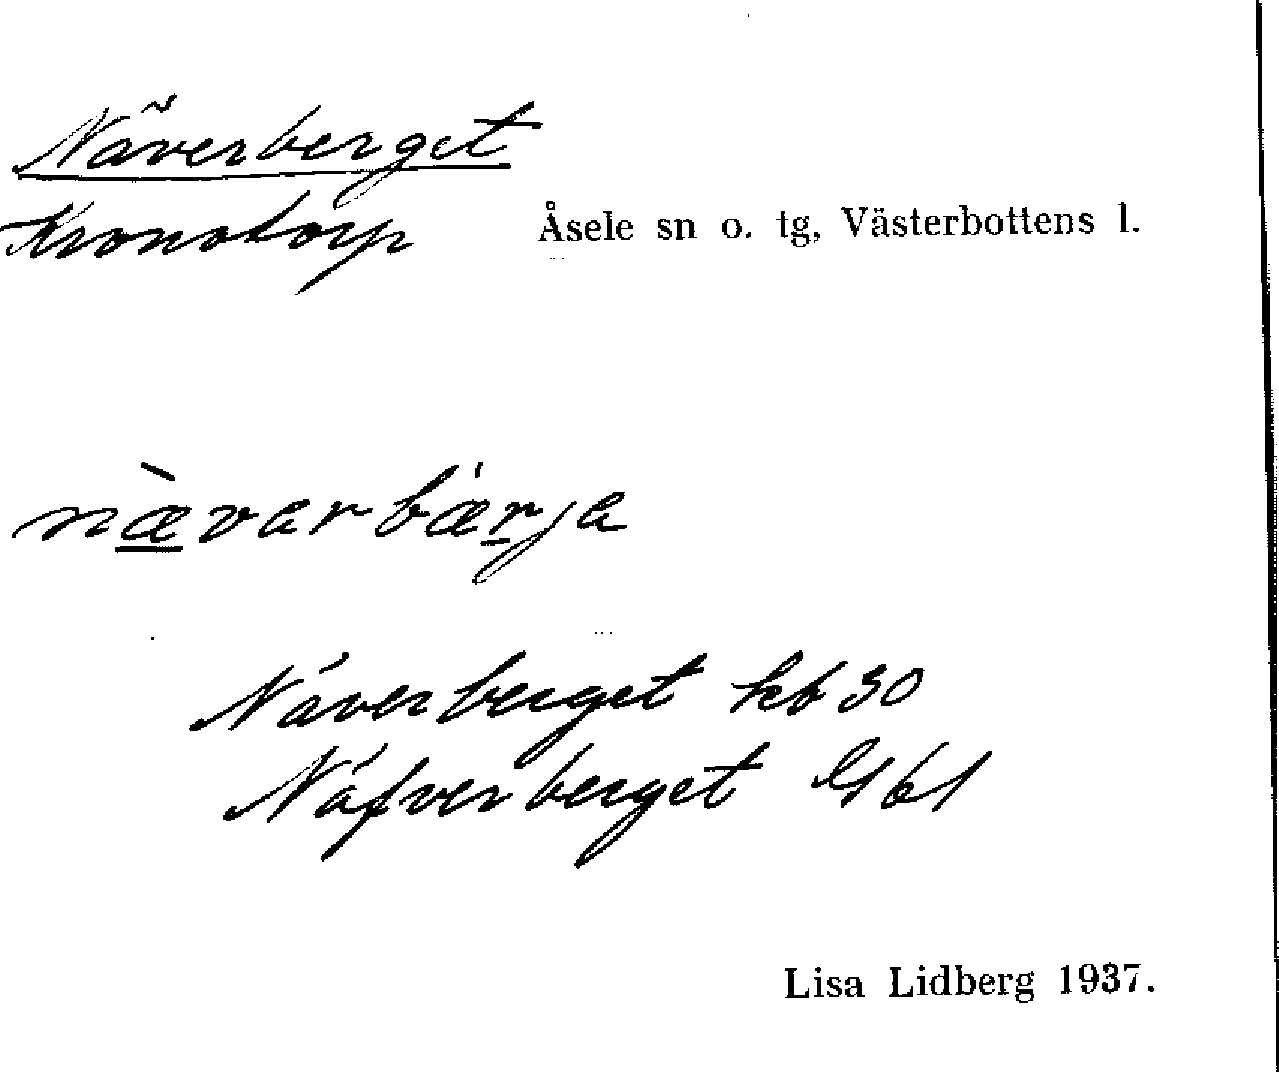 Näverberget
Kronotorp Åsele sn o. tg, Västerbottens l.
næ̀varbær̠ja
Näverberget kb 30
Näfverberget Gbl
Lisa Lidberg 1937.